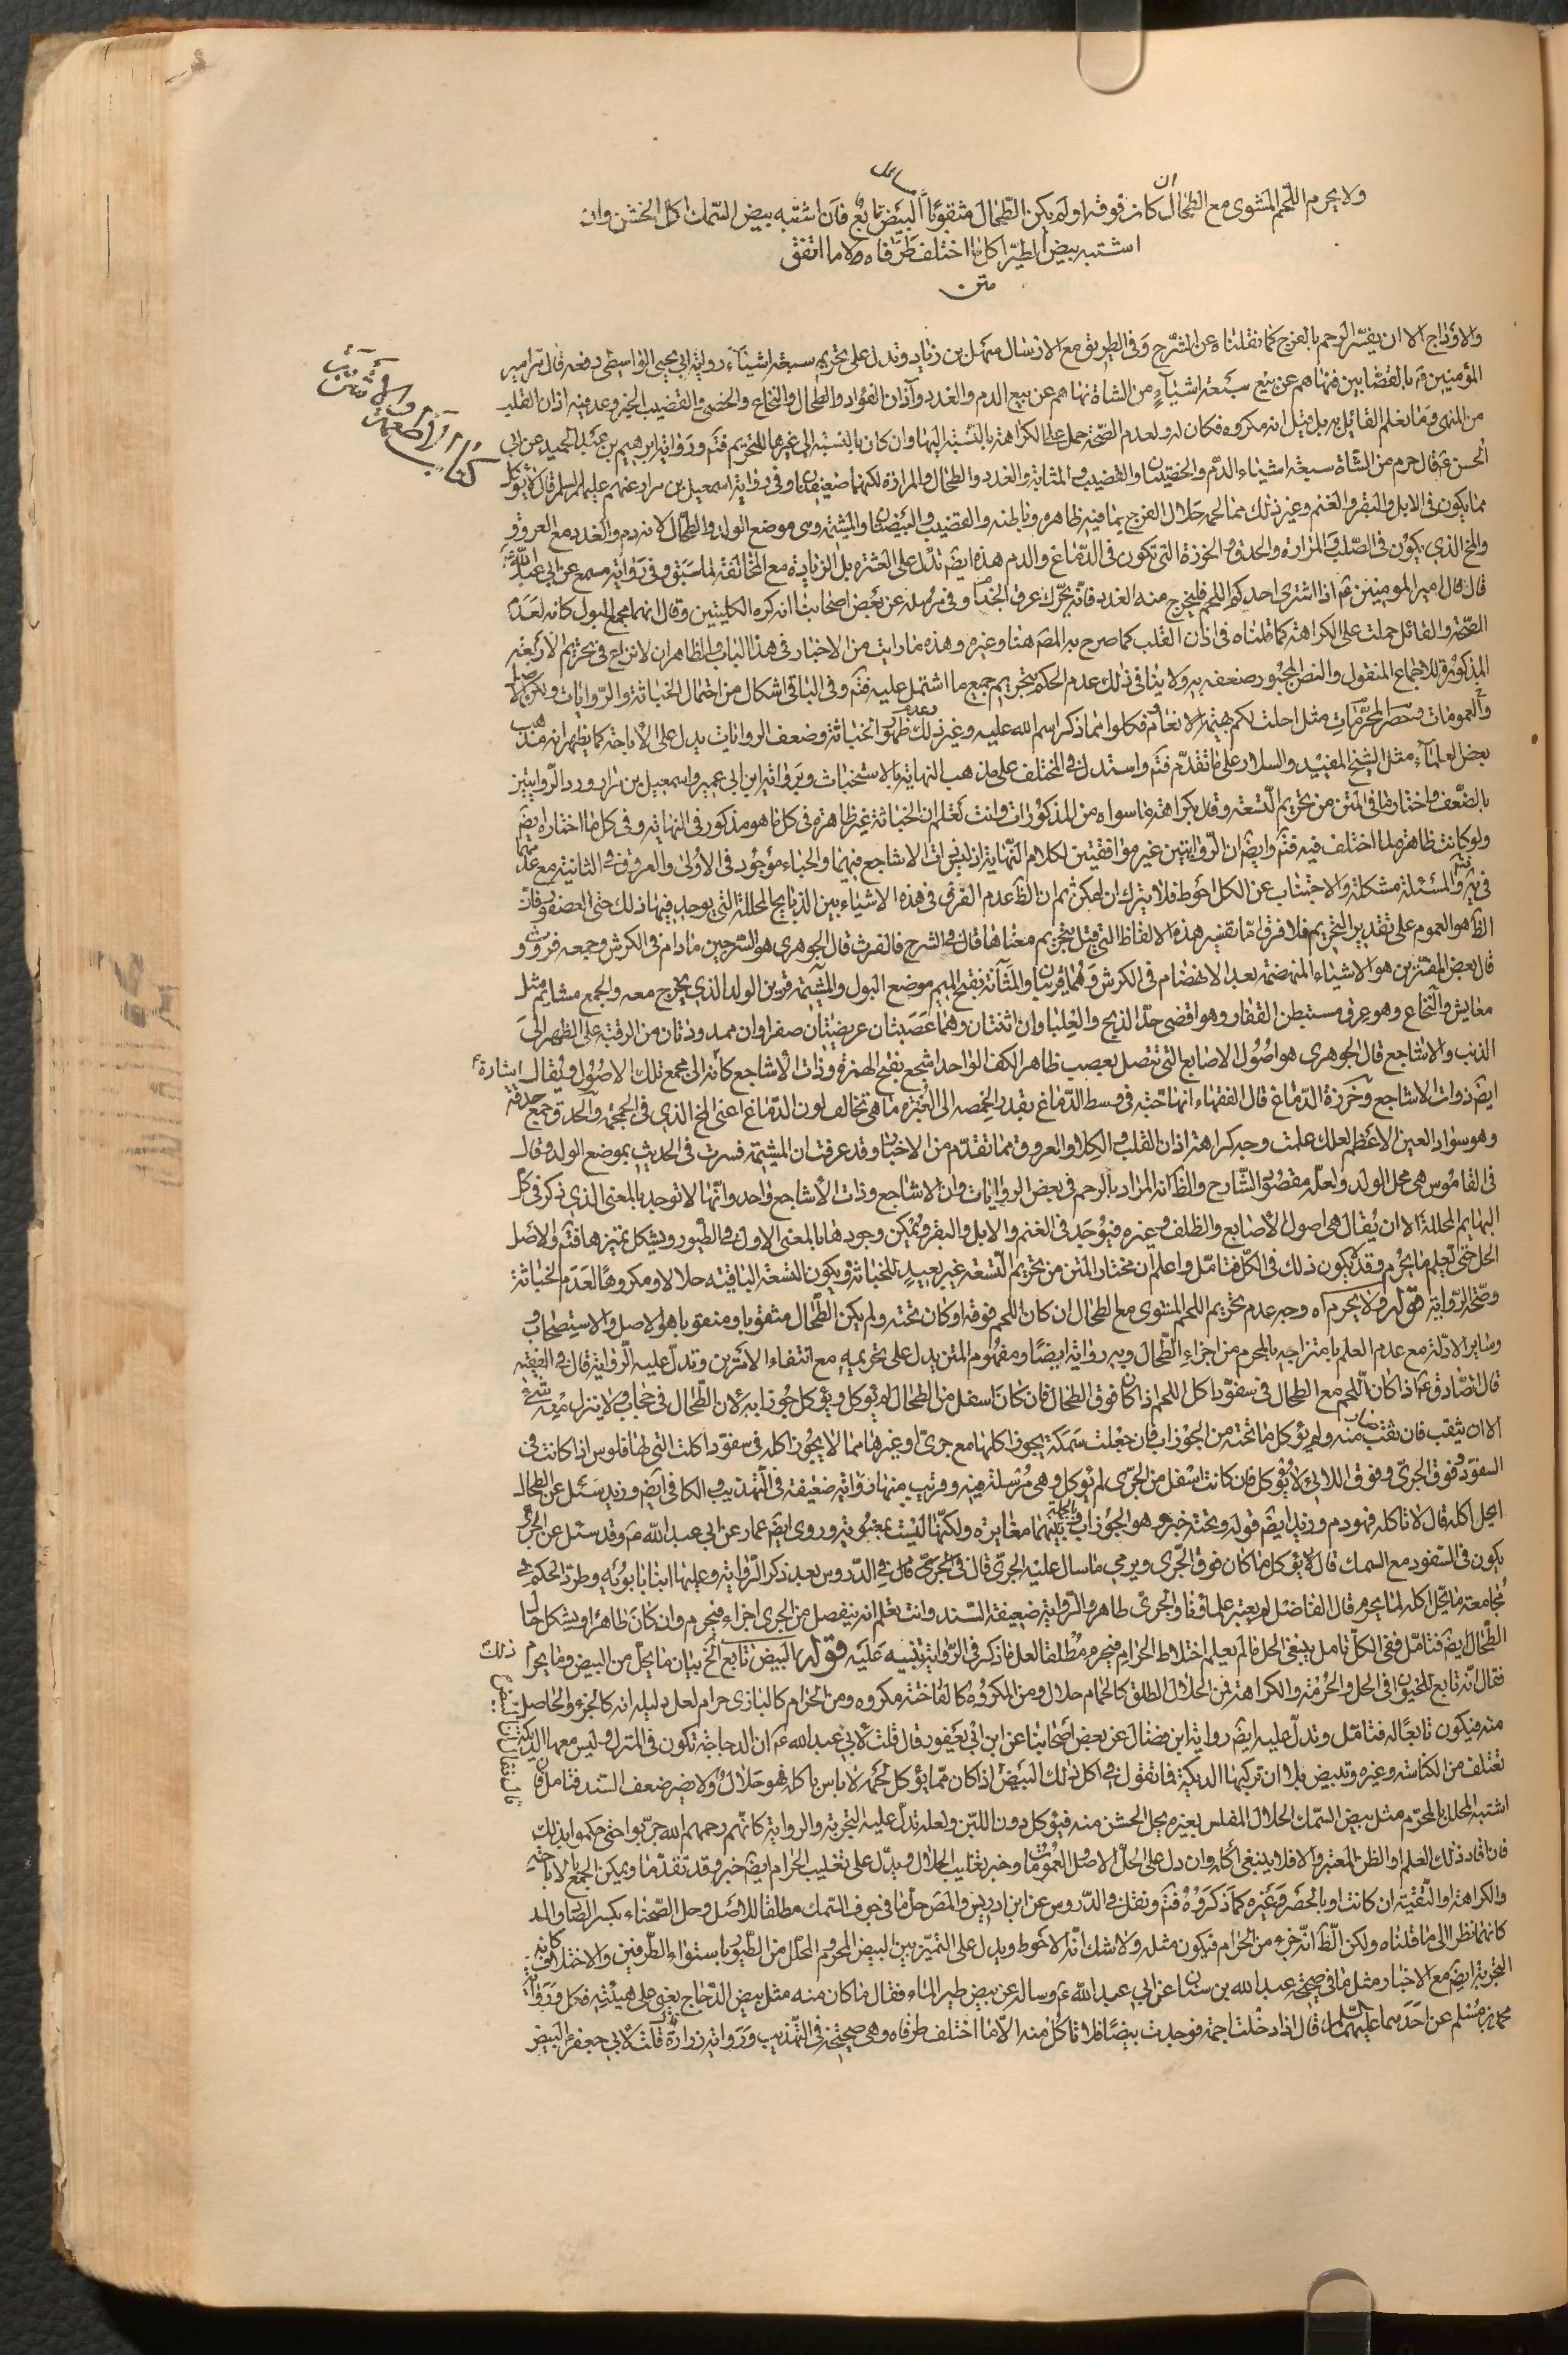 ولا يحرم اللحم المشوى مع الطحال ان كان فوقه او لم يكن الطحال مثقوبا البيض تابع فان اشتبه بيض السمك اكل الخشن وان
اشتبه بيض الطير اكل ما اختلف طرفاه ولا ما اتفق
متن
كتاب الأطعمة والأشربة
والاوداج الا ان يفسر الرحم بالفرج كما نقلناه عن الشرح وفى الطريق مع الارسال سهل بن زياد وتدل على تحريم سبعة اشياء رواية ابى يحيى الواسطى رفعه قال مر امير
المؤمنين ع بالقصابين فنهاهم عن بيع سبعة اشياء من الشاة نهاهم عن بيع الدم والغدد وآذان الفؤاد والطحال والنخاع والخصى والقضيب الخبر وعد فيه اذان القلب
من المنهى وما نعلم القائل به بل قيل انه مكروه فكان له ولعدم الصحة حمل على الكراهة بالنسبة اليها وان كان بالنسبة الى غيرها للتحريم فتم ورواية ابرهيم بن عبد الحميد عن ابى
الحسن ع قال حرم من الشاة سبعة اشياء الدم والخصيتان والقضيب والمثانة والغدد والطحال والمرارة لكنهما ضعيفتان وفى رواية اسمعيل بن مرار عنهم عليهم السلم قال لا يؤكل
مما يكون فى الابل والبقر والغنم وغير ذلك مما لحمه حلال الفرج بما فيه ظاهره وباطنه والقضيب والبيضتان والمشيمة وهى موضع الولد والطحال لانه دم والغدد مع العروق
والمخ الذى يكون فى الصلب والمرارة والحدق والخرزة التى تكون فى الدماغ والدم هذه ايض تدل على العشرة بل الزيادة مع المخالفة لما سبق وفى رواية مسمع عن ابى عبد الله ع
قال قال امير المومنين ع اذا اشترى احدكم اللحم فليخرج منه الغدد فانه يحرك عرق الجذام وفى مرسلة عن بعض اصحابنا انه كره الكليتين وقال انهما مجمع البول كانه لعدم
الصحة والقائل حملت على الكراهة كما قلناه فى اذن القلب كما صرح به المصه هنا وغيره وهذه ما رايت من الاخبار فى هذا الباب والظاهر ان لا نزاع فى تحريم الاربعة
المذكورة للاجماع المنقول والنص المجبور ضعفه به ولا ينافى ذلك عدم الحكم بتحريم جميع ما اشتمل عليه فتم وفى الباقى اشكال من احتمال الخباثة والروايات ولكن الاصل
والعمومات وحصر المحرمات مثل احلت لكم بهيمة الانعام فكلوا مما ذكر اسم الله عليه وغير ذلك وعدم ظهور الخباثة وضعف الروايات يدل على الاباحة كما يظهر انه مذهب
بعض العلماء مثل الشيخ المفيد والسلار على ما تقدم فتم واستدل فى المختلف على مذهب النهاية بالاستخباث وبرواية ابن ابى عمير واسمعيل بن مرار ورد الروايتين
بالضعف واختار ما فى المتن من تحريم التسعة وقل بكراهة ما سواه من المذكورات وانت تعلم ان الخباثة غير ظاهرة فى كل ما هو مذكور فى النهاية وفى كل ما اختاره ايض
ولو كانت ظاهرة لما اختلف فيه فتم وايض ان الروايتين غير موافقتين لكلام النهاية اذ ليس ذات الاشاجع فيهما والحياء موجود فى الاولى والعروق فى الثانية مع عدمهما
فى ية والمسئلة مشكلة والاجتناب عن الكل احوط فلا يترك ان امكن ثم ان الظ عدم الفرق فى هذه الاشياء بين الذبايح المحللة التى يوجد فيها ذلك حتى العصفور فان
الظ هو العموم على تقدير التحريم فلا فرق اما تفسير هذه الالفاظ التى قيل بتحريم معناها قال فى الشرح فالفرث قال الجوهرى هو السرجين ما دام فى الكرش وجمعه فروث و
قال بعض المفسرين هو الاشياء المنهضمة بعد الانهضام فى الكرش وهما قريبان والمثانة بفتح الميم موضع البول والمشيمة قرين الولد الذى يخرج معه والجمع مشايم مثل
معايش والنخاع وهو عرق مستبطن القفار وهو اقصى حد الذبح والعلباوان اثنتان وهما عصبتان عريضتان صفراوان ممدودتان من الرقبة على الظهر الى
الذنب والاشاجع قال الجوهرى هو اصول الاصابع التى تتصل بعصب ظاهر الكف الواحد اشجع بفتح الهمزة وذات الاشاجع كانه الى مجمع تلك الاصول ويقال اشارة
ايض ذوات الاشاجع وخرزة الدماغ قال الفقهاء انها حبة فى وسط الدماغ بقدر الحمصة الى الغبرة ما هى تخالف لون الدماغ اعنى المخ الذى فى الجمجمة والحدق جمع حدقة
وهو سواد العين الاعظم لعلك علمت وجه كراهة اذان القلب والكلا والعروق مما تقدم من الاخبار وقد عرفت ان المشيمة فسرت فى الحديث بموضع الولد وقال
فى القاموس هى محل الولد ولعله مقصود الشارح والظ انه المراد بالرحم فى بعض الروايات وان الاشاجع وذات الاشاجع واحد وانها لا توجد بالمعنى الذى ذكر فى كل
البهايم المحللة الا ان يقال هى اصول الاصابع والظلف وغيره فيوجد فى الغنم والابل والبقر ويمكن وجودها بالمعنى الاول فى الطيور ويشكل تميزها فتم والاصل
الحل حتى يعلم ما يحرم وقد يكون ذلك فى الكل فتامل واعلم ان مختار المتن من تحريم التسعة غير بعيد للخباثة ويكون التسعة الباقية حلالا ومكروها لعدم الخباثة
وصحة الرواية قوله ولا يحرم اه وجه عدم تحريم اللحم المشوى مع الطحال ان كان اللحم فوقه او كان تحته ولم يكن الطحال مثقوبا ومنقوبا هو الاصل والاستصحاب و
وساير الادلة مع عدم العلم بامتزاجه بالمحرم من اجزاء الطحال وبه رواية ايضا ومفهوم المتن يدل على تحريمه مع انتفاء الامرين وتدل عليه الرواية قال فى الفقيه
قال الصادق ع اذا كان اللحم مع الطحال فى سفود اكل اللحم اذا كان فوق الطحال فان كان اسفل من الطحال لم يؤكل ويؤكل جوذابه لان الطحال فى حجاب ولا ينزل منه شئ
الا ان يثقب فان ثقب سال منه ولم يؤكل ما تحته من الجوذاب فان جعلت سمكة يجوز اكلها مع جرى او غيرها مما لا يجوز اكله فى سفود اكلت التى لها فلوس اذا كانت فى
السفود فوق الجرى وفوق اللائى لا يؤكل فان كانت اسفل من الجرى لم يؤكل وهى مرسلة فيه وقريب منها رواية ضعيفة فى التهذيب والكافى ايض وزيد سئل عن الطحال
ايحل اكله قال لا تاكله فهو دم وزيد ايض قوله وتحته خبز وهو الجوذاب بينهما مغايرة ولكنها ليست بمغيرته وروى ايض عمار عن ابى عبد الله ع وقد سئل عن الجرى
يكون فى السفود مع السمك قال يؤكل ما كان فوق الجرى ويرمى ما سال عليه الجرى قال فى الدروس بعد ذكر الرواية وعليها ابنا بابويه وطرد الحكم فى
مجامعة ما يحل اكله لما يحرم قال الفاضل لم يعتبر علماؤنا والجرى طاهر والرواية ضعيفة السند وانت تعلم انه ينفصل من الجرى اجزاء فيحرم وان كان طاهرا ويشكل حال
الطحال ايض فتامل ففى الكل تامل ينبغى الحل ما لم يعلم اختلاط الحرام فيحرم مطلقا لعل ما ذكر فى الرواية تنبيه عليه قوله البيض تابع الخ بيان ما يحل من البيض وما يحرم
فقال انه تابع للحيوان فى الحل والحرمة والكراهة فمن الحلال الطلق كالحمام حلال ومن المكروه كالفاختة مكروه ومن الحرام كالبازى حرام لعل دليله انه كالجزء والحاصل
منه فيكون تابعا له فتامل وتدل عليه ايض رواية ابن فضال عن بعض اصحابنا عن ابن ابى يعفور قال قلت لابى عبد الله ع ان الدجاجة تكون فى المنزل وليس معها الديكة
تعتلف من الكناسة وغيره وتبيض بلا ان تركبها الديكة فما تقول فى اكل ذلك البيض اذا كان مما يؤكل لحمه لا باس باكله فهو حلال ولا يضر ضعف السند فتامل فان
اشتبه المحلل بالمحرم مثل بيض السمك الحلال المفلس بغيره يحل الخشن منه فيؤكل دون اللين ولعله تدل عليه التجربة والرواية كانهم رحمهم الله جربوا حتى حكموا بذلك
فان افاد ذلك العلم او الظن المعتبر والا فلا ينبغى اكله وان دل على الحل الاصل والعمومات وخبر تغليب الحلال ويدل على تغليب الحرام ايض خبر وقد تقدما ويمكن الجمع بالاباحة
والكراهة او التقية ان كانت او بالحصر وغيره كما ذكروه فتم ونقل فى الدروس عن ابن ادريس والمصه حل ما فى جوف السمك مطلقا للاصل وحل الصحناء بكسر الصاد والمد
كانهما نظرا الى ما قلناه ولكن الظ انه جزء من الحرام فيكون مثله ولا شك انه الاحوط ويدل على التميز بين البيض المحرم والمحلل من الطيور باستواء الطرفين والاختلاف كانه
التجربة ايض مع الاخبار مثل ما فى صحيحة عبد الله بن سنان عن ابى عبد الله ع وساله عن بيض طير الماء فقال ما كان منه مثل بيض الدجاج يعنى على هيئته فكل ورواية
محمد بن مسلم عن احدهما عليهما السلام قال اذا دخلت اجمة فوجدت بيضا فلا تاكل منه الا ما اختلف طرفاه وهى صحيحة فى التهذيب ورواية زرارة قلت لابى جعفر البيض